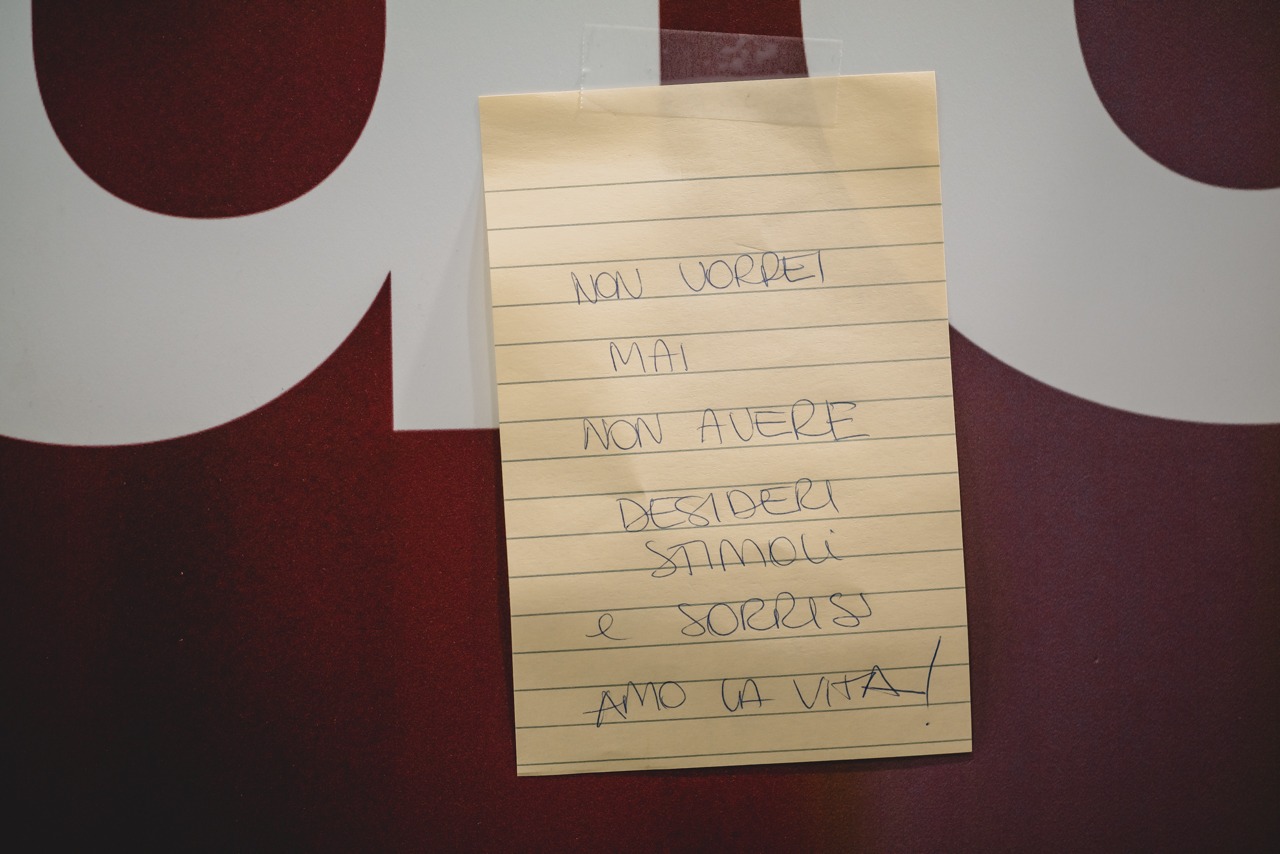 NON VORREI
MAI
NON AVERE
DESIDERI
STIMOLi
e SORRISI
AMO LA VITA!